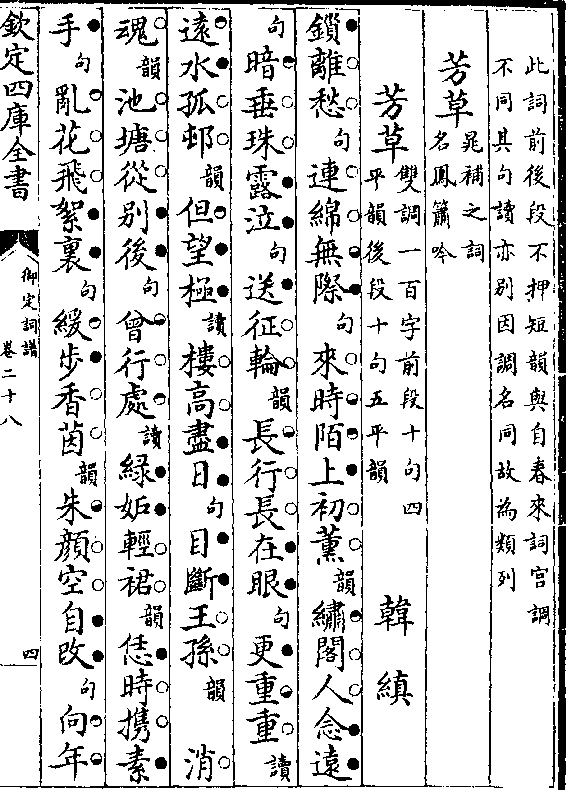 此詞前後段不押短韻與自春來詞宫調
不同其句讀亦别因調名同故為類列
芳草晁補之詞
名鳳簫吟
芳草雙調一百字前段十句四
平韻後段十句五平韻 韓縝
鎖離愁句連綿無際句來時陌上初薰韻繡閣人念遠
句暗垂珠露泣句送征輪韻長行長在眼句更重重讀
遠水孤邨韻但望極讀樓高盡日句目斷王孫韻 消
魂韻池塘從别後句曾行處讀緑妬輕裙韻恁時携素
手句亂花飛絮裏句緩步香茵韻朱顔空自改句向年
欽定四庫全書
御定詞譜
卷二十八
四